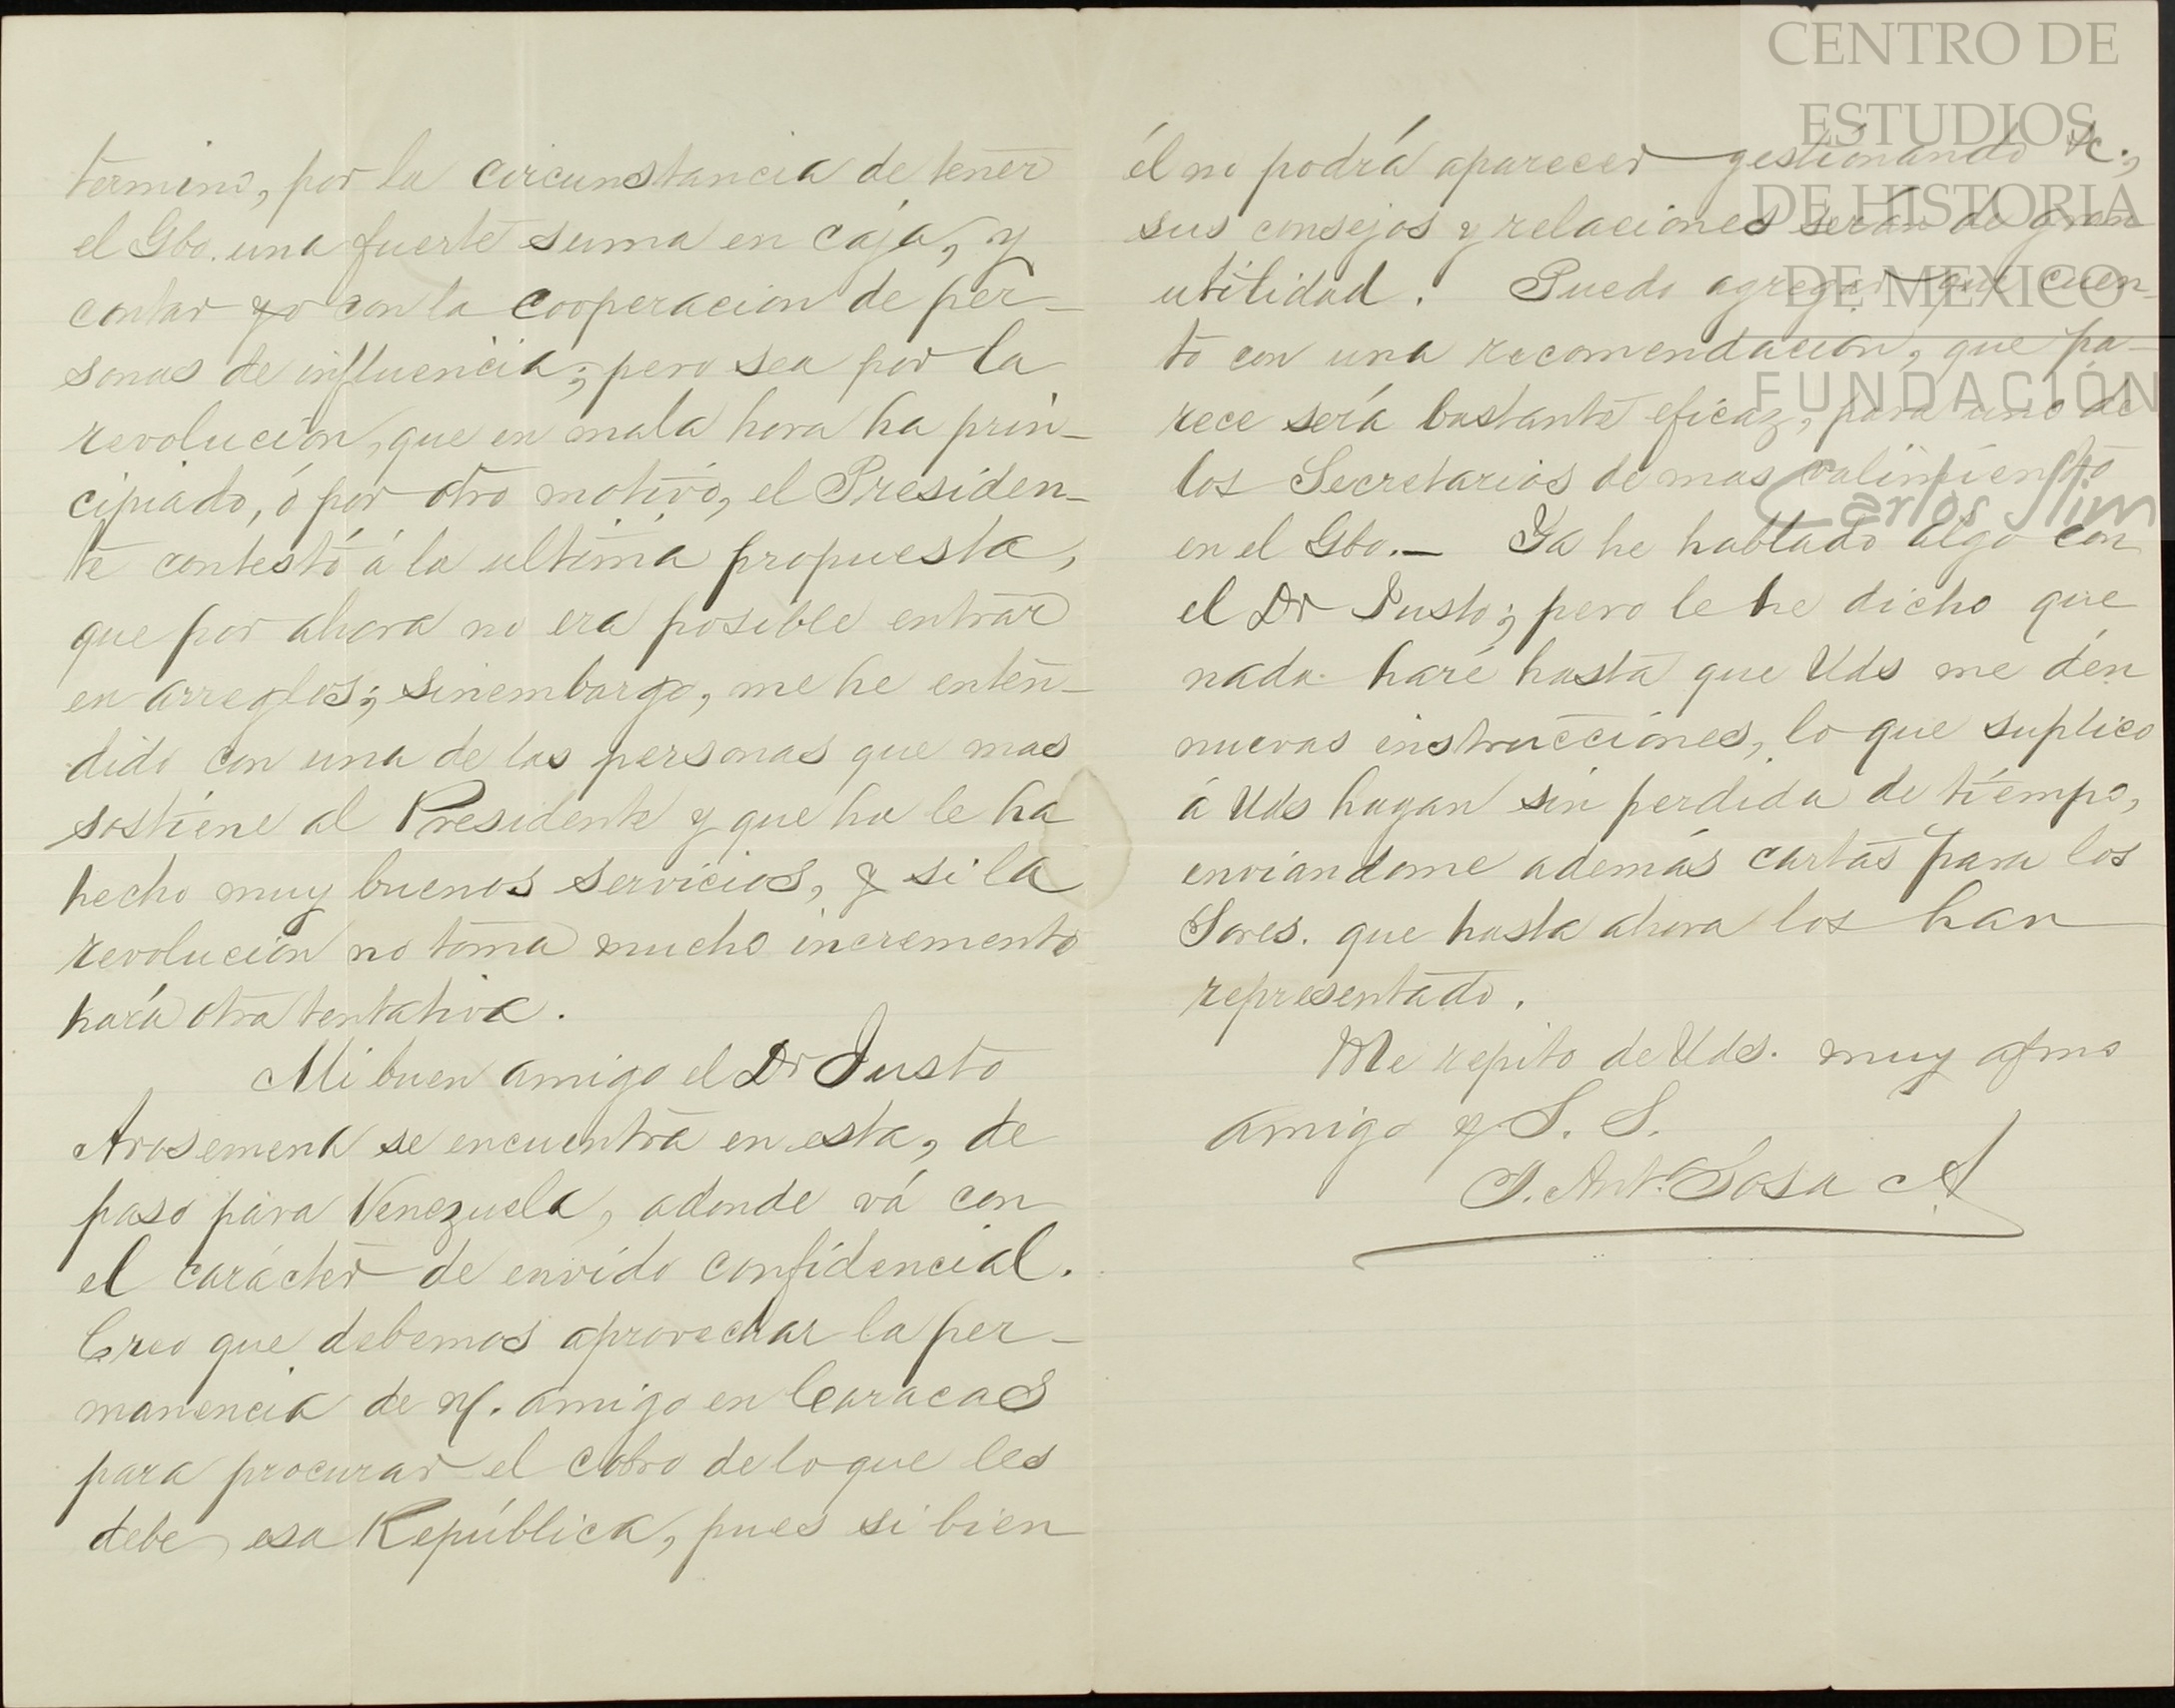 termino, por la circunstancia de tener
el Gbo. una fuerte suma en caja, y
contar yo con la cooperacion de per-
sonas de influencia; pero sea por la
revolucion, que en mala hora ha prin-
cipiado, ó por otro motivo, el Presiden-
te contestó á la ultima propuesta,
que por ahora no era posible entrar
en arreglos; sinembargo, me he enten-
dido con una de las personas que mas
sostiene al Presidente y que ha le ha
hecho muy buenos servicios, y si la
revolucion no toma mucho incremento
hará otra tentativa.
Mi buen amigo el Dr Justo
Arosemena se encuentra en esta, de
paso para Venezuela, adonde vá con
el carácter de enviado confidencial.
Creo que debemos aprovechar la per-
manencia de N. amigo en Caracas
para procurar el cobro de lo que les
debe esa República, pues si bien
él no podrá aparecer gestionando &c.,
sus consejos y relaciones serán de gran
utilidad. Puedo agregar que cuen-
to con una recomendacion, que pa-
rece sería bastante eficaz, para uno de
los Secretarios de mas valimiento
en el Gbo.— Ya he hablado algo con
el Dr Justo; pero le he dicho que
nada haré hasta que Uds me dén
nuevas instrucciones, lo que suplico
á Uds hagan sin perdida de tiempo,
enviandome además cartas para los
Sores. que hasta ahora los han
representado.
Me repito de Uds. muy afmo
amigo y S. S.
J. Ant. Sosa A
CENTRO DE
ESTUDIOS
DE HISTORIA
DE MEXICO
FUNDACIÓN
Carlos Slim